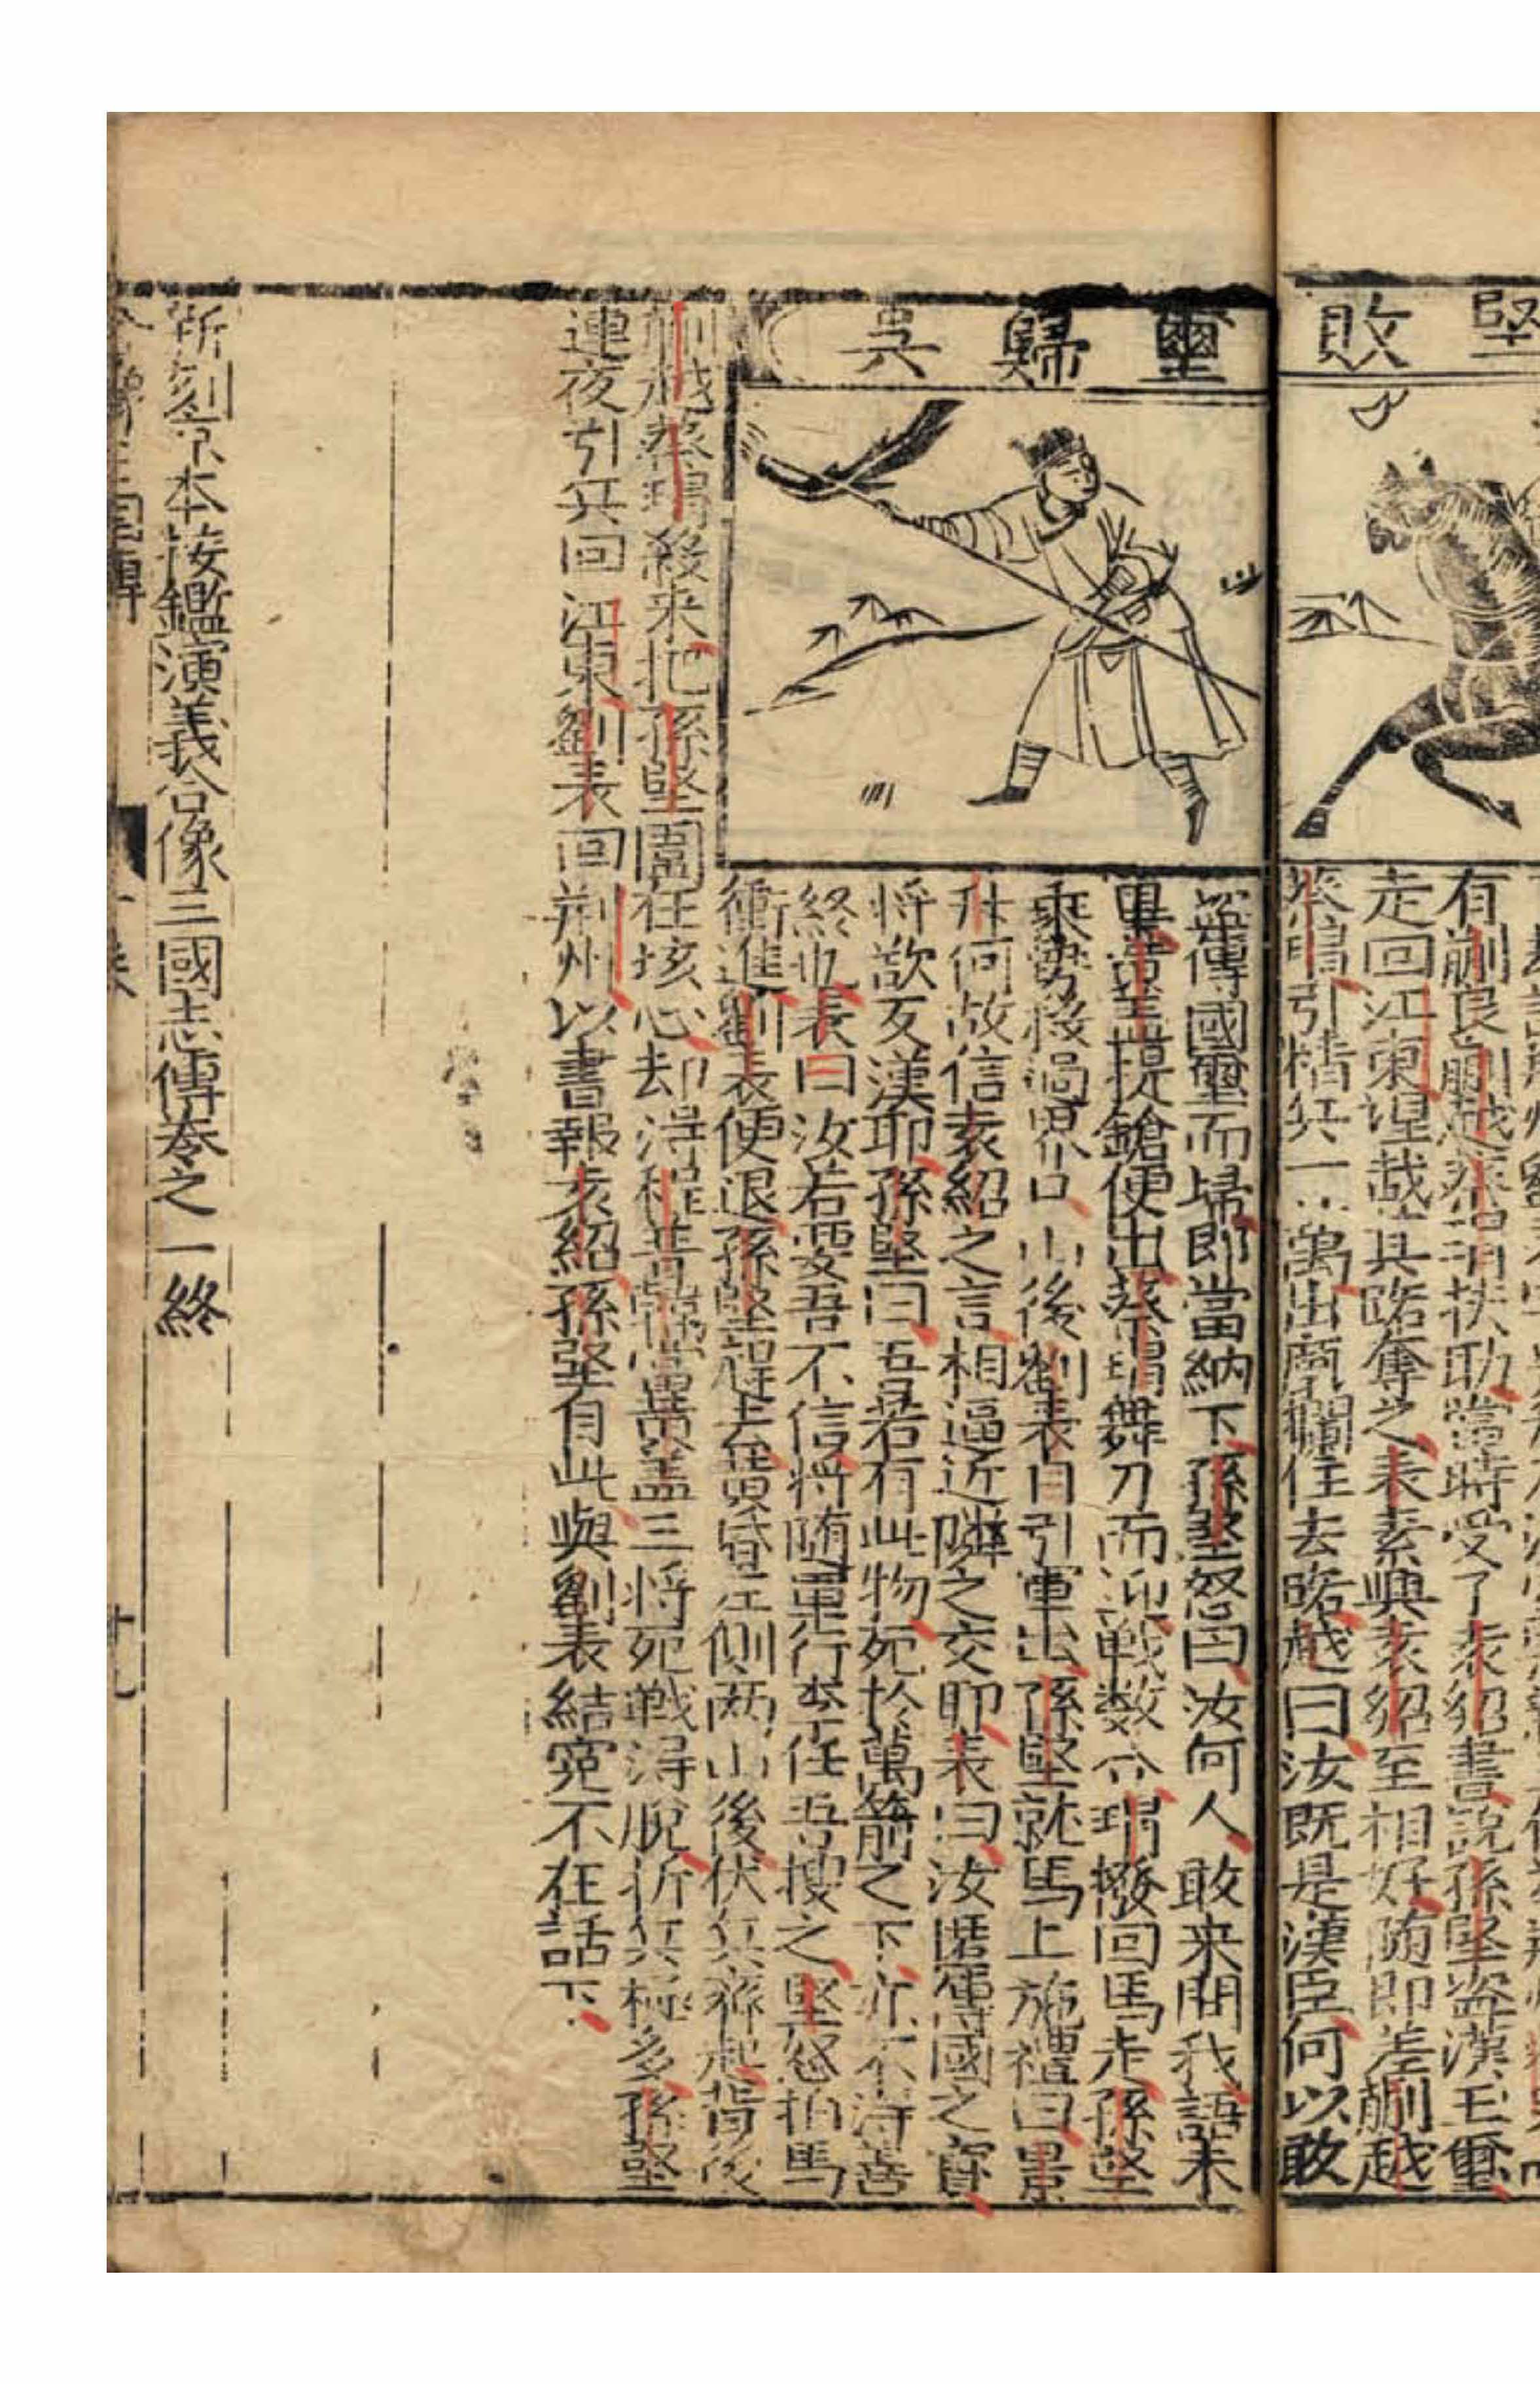 堅敗
璽歸吳
有蒯良蒯越蔡瑁扶助當時受了袁紹書說孫堅盜漢玉璽
走回江東逕截其路奪之表素與袁紹至相好随即差蒯越
蔡瑁引精兵一萬出南攔住去路越曰汝既是漢臣何以敢
匿傳國璽而歸即當納下孫堅怒曰汝何人敢来問我語未
畢黃盖提鎗便出蔡瑁舞刀而迎戰数合瑁撥回馬走孫堅
乘勢殺過界口山後劉表自引軍出孫堅就馬上施禮曰景
升何故信袁紹之言相逼近隣之交耶表曰汝匿傳國之寶
将欲反漢耶孫堅曰吾若有此物死於萬箭之下亦不得善
終也表曰汝若要吾不信将随軍行李任吾搜之堅怒拍馬
衝進劉表便退孫堅趕去 兩山後伏兵齊起背後
蒯越蔡瑁殺来把孫堅圍在垓心去却得程普韓當黃盖三将死戦得脫折兵極多孫堅
連夜引兵回江東劉表回荊州以書報袁紹孫堅自此與劉表結寃不在話下
新刻京本按鑑演義合像三國志傳卷之一終